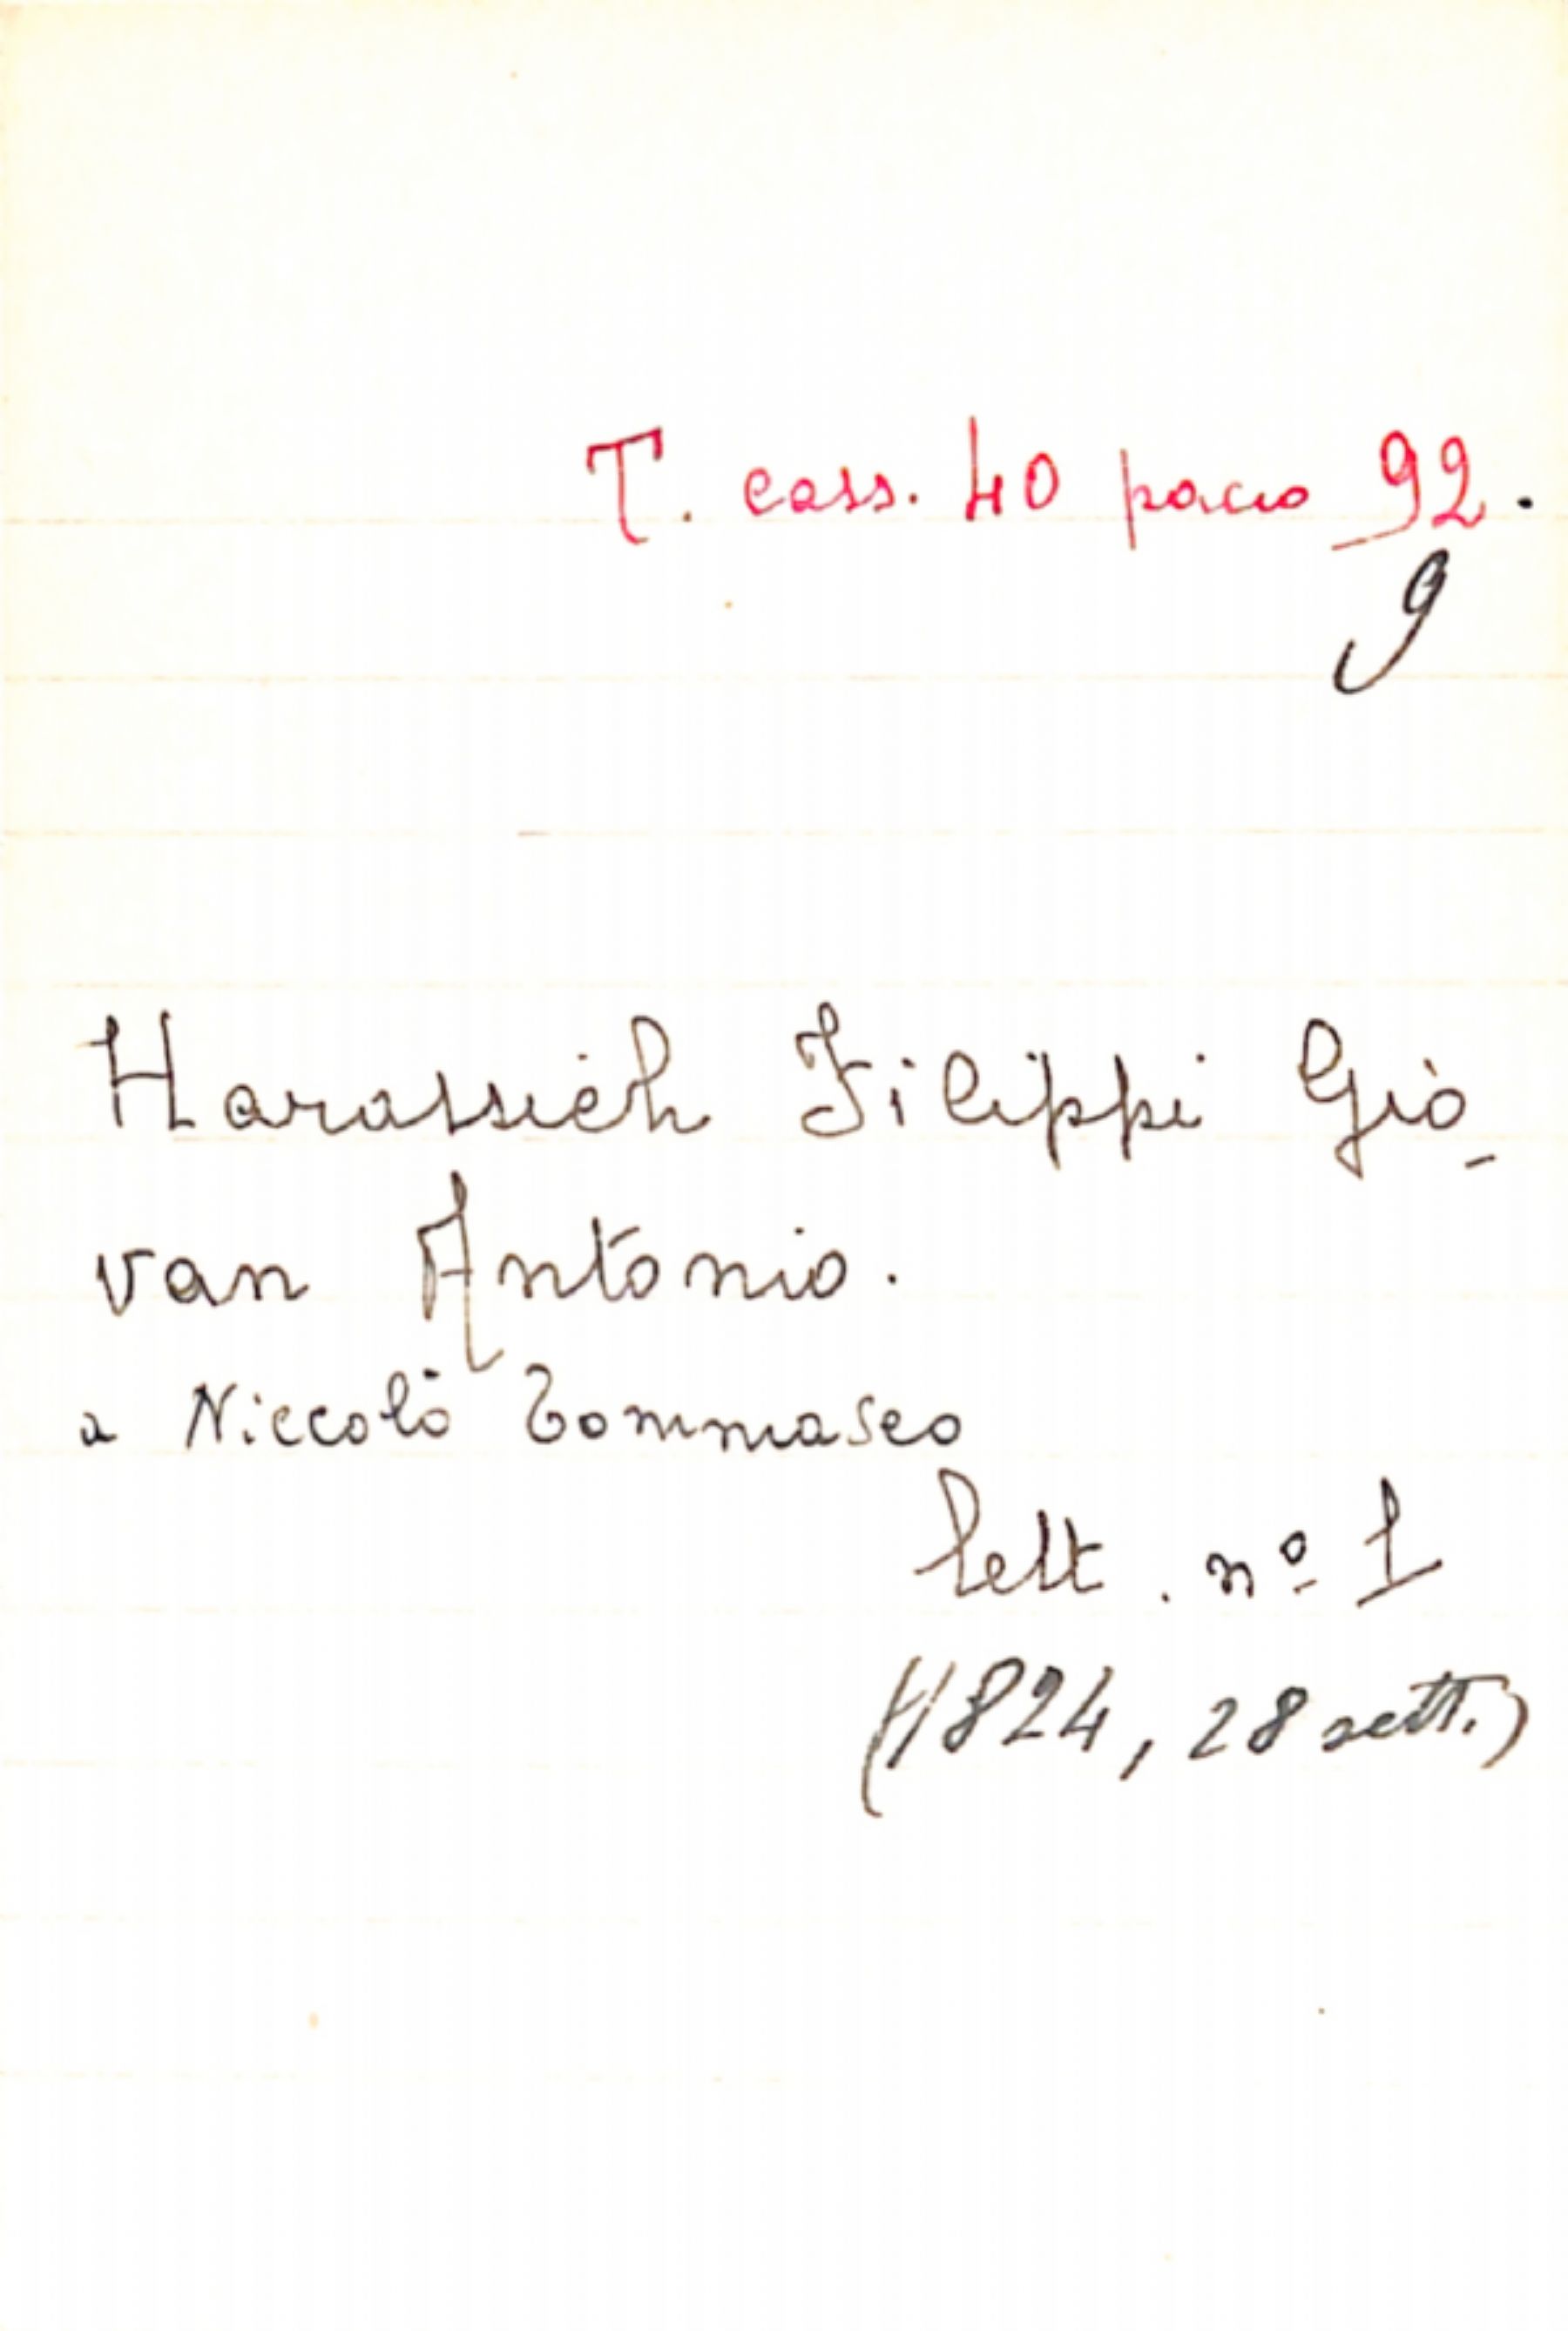 T. cass. 40 pacco 92.
9
Harassich Filippi Gio-
van Antonio.
a Niccolò Tommaseo
lett. nº 1
(1824, 28 sett.)